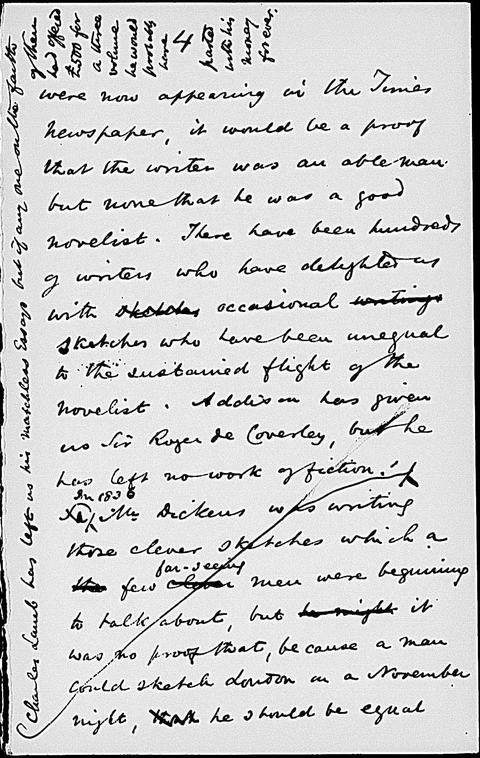 4
were now appearing in the Times
newspaper, it would be a proof
that the writer was an able man
but none that he was a good
novelist. There have been hundreds
of writers who have delighted us
with sketches occasional writings
sketches who have been unequal
to the sustained flight of the
novelist. Addison has given
us Sir Roger de Coverley, but he
has left no work of fiction.
In 1836
Mr Dickens was writing
those clever sketches which a
far-seeing
the few clever men were beginning
to talk about, but he might it
was no proof that, because a man
could sketch London on a November
night, that he should be equal
(Charles Lamb has left us his matchless Essays but if any one on the faith
of them
had offered
£500 for
a three
volume
he would
probably
have
parted
with his
money
for ever,